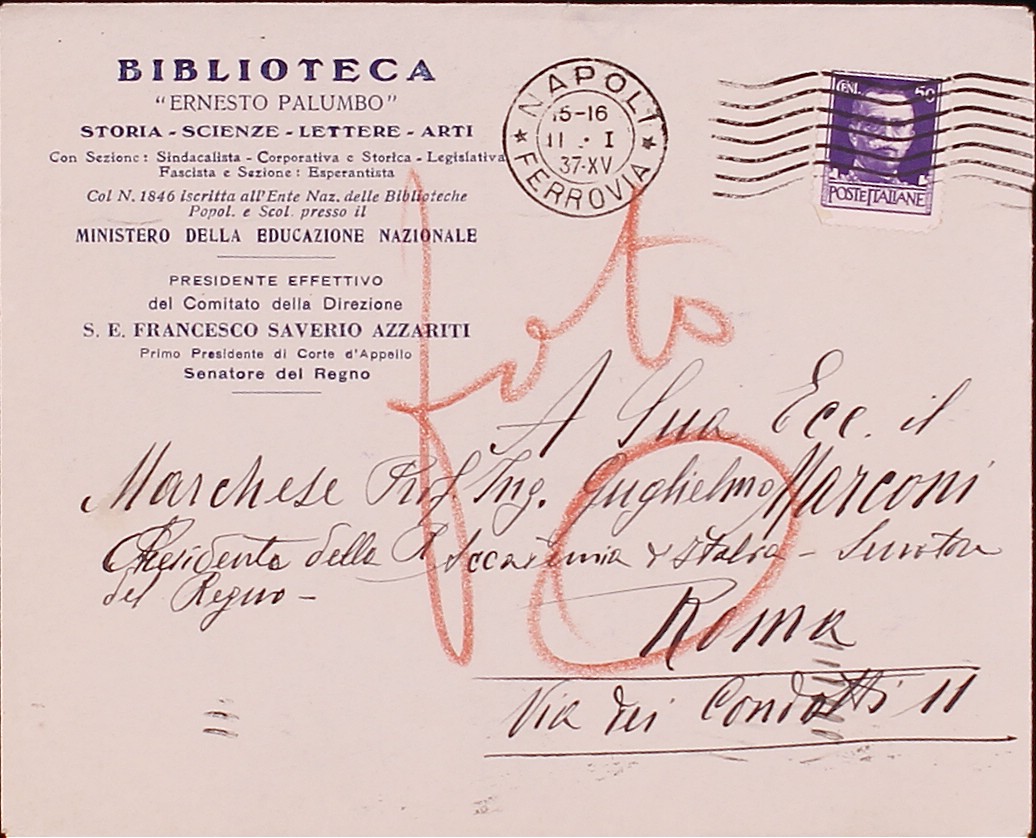 BIBLIOTECA
"ERNESTO PALUMBO"
STORIA - SCIENZE - LETTERE - ARTI
Con Sezione: Sindacalista - Corporativa e Storica - Legislativa
Fascista e Sezione: Esperantista
Col N. 1846 iscritta all'Ente Naz. delle Biblioteche
Popol. e Scol. presso il
MINISTERO DELLA EDUCAZIONE NAZIONALE
PRESIDENTE EFFETTIVO
del Comitato della Direzione
S. E. FRANCESCO SAVERIO AZZARITI
Primo Presidente di Corte d'Appello
Senatore del Regno
NAPOLI
15-16
11 . I
37-XV
FERROVIA
CENT. 50
POSTE ITALIANE
foto
A Sua Ecc. il
Marchese Prof Ing. Guglielmo Marconi
Presidente della R Accademia d'Italia - Senatore
del Regno -
Roma
Via dei Condotti 11